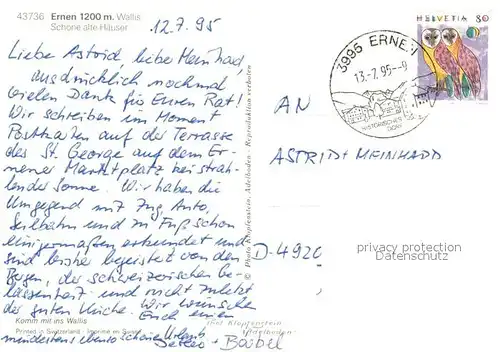 43736 Ernen 1200 m. Wallis
Schöne alte Häuser
12.7.95
Liebe Astrid, lieber Meinhard
ausdrücklich nochmal
vielen Dank für Euren Rat!
Wir schreiben im Moment
Postkarten auf der Terrasse
des St. George auf dem Er-
nener Marktplatz bei strah-
lender Sonne. Wir haben die
Umgegend mit Zug, Auto,
Seilbahn und zu Fuß schon
einigermaßen erkundet und
sind bisher begeistert von den
Bergen, der schweizerischen Ge-
lassenheit und nicht zuletzt
der guten Küche. Wir wünschen
Euch einen
mindestens ebenso schönen Urlaub
Detlef + Bärbel
Komm mit ins Wallis
Printed in Switzerland - Imprimé en Suisse
© Photo Klopfenstein, Adelboden - Reproduktion verboten
Photo Klopfenstein
Adelboden
HELVETIA 80
3995 ERNEN
13.-7. 95-9
HISTORISCHES
DORF
AN
ASTRID + MEINHARD
D-4920
privacy protection
Datenschutz